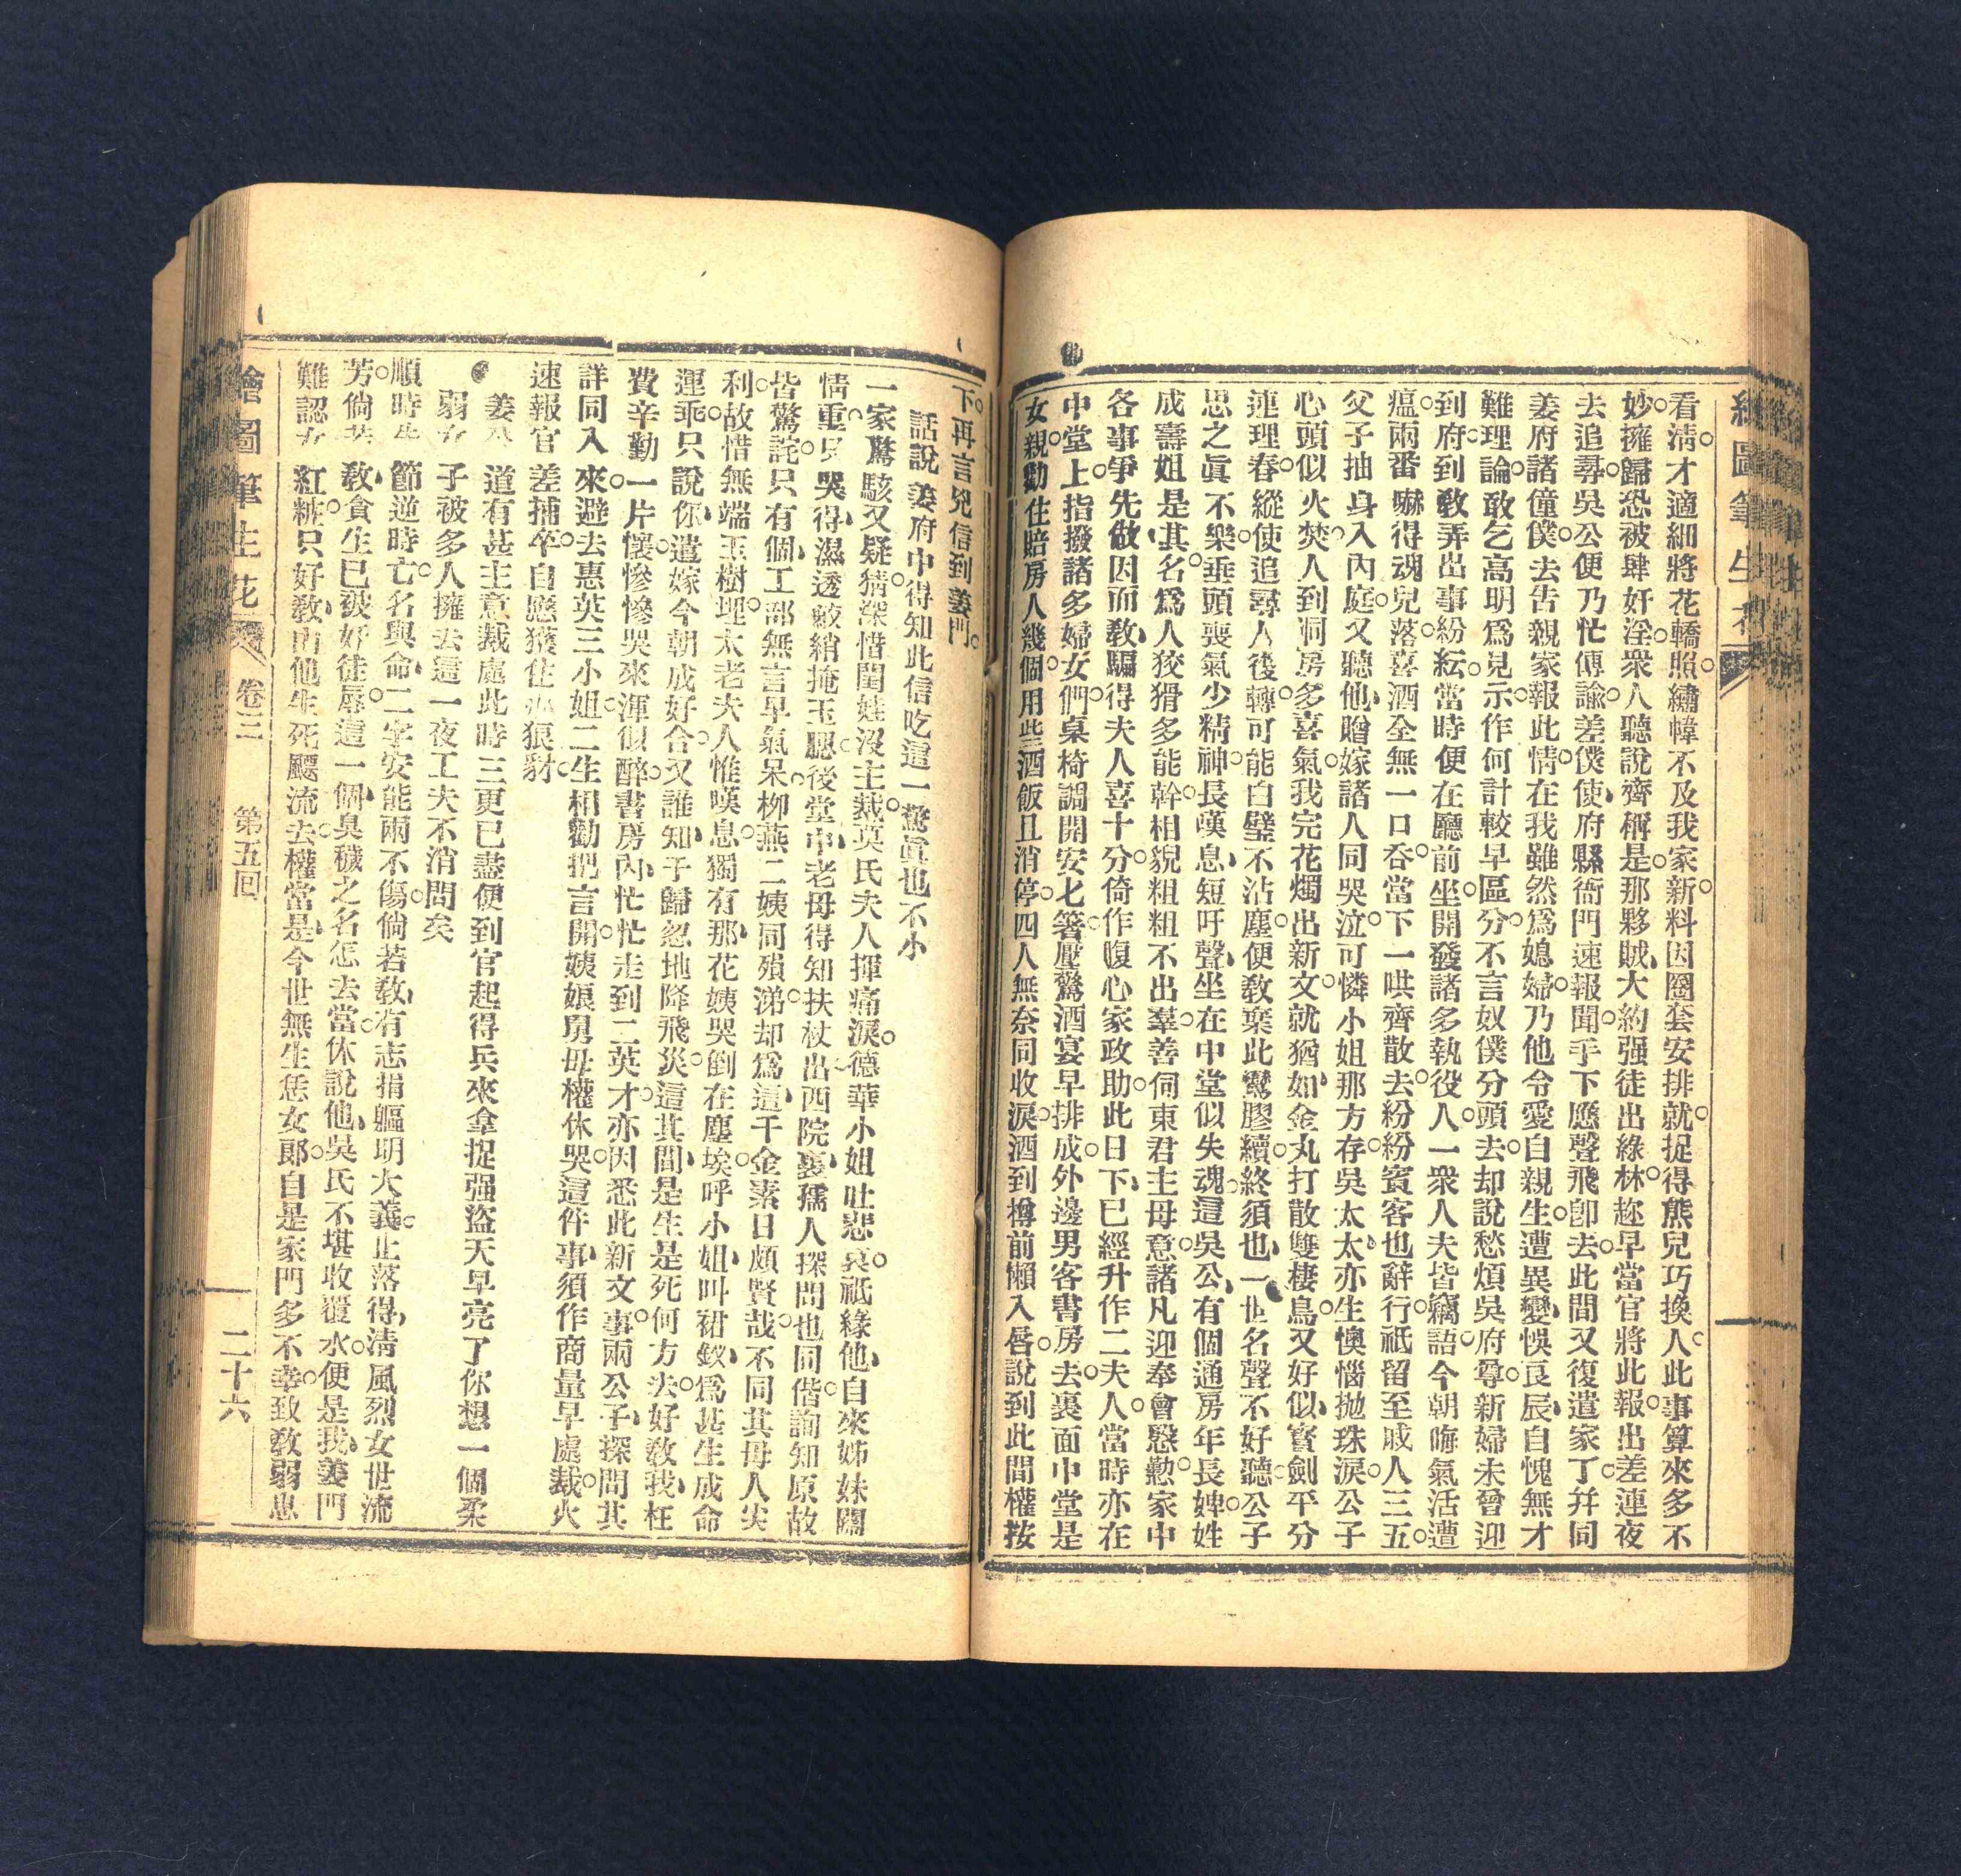 繪圖筆生花
看清○才適細將花轎照○繡幃不及我家新○料因圈套安排就○捉得熊兒巧換人○此事算來多不
妙○擁歸恐被肆奸淫○衆人聽說齊稱是○那夥賊大約强徒出綠林○趂早當官將此報○出差連夜
去追尋○吳公便乃忙傳諭○差僕使府縣衙門速報聞○手下應聲飛卽去○此間又復遣家丁○幷同
姜府諸僮僕○去告親家報此情○在我雖然爲媳婦○乃他令愛自親生○遭異變悞良辰自愧無才
難理論○敢乞高明爲見示○作何計較早區分○不言奴僕分頭去○却說愁煩吳府尊○新婦未曾迎
到府○到教弄出事紛紜○當時便在廳前坐○開發諸多執役人○一衆人夫皆竊語○今朝晦氣活遭
瘟○兩番嚇得魂兒落○喜酒全無一口吞○當下一哄齊散去○紛紛賓客也辭行○祗留至戚人三五○
父子抽身入內庭○又聽他贈嫁諸人同哭泣○可憐小姐那方存○吳太太亦生懊惱抛珠淚○公子
心頭似火焚○人到洞房多喜氣○我完花燭出新文○就猶如金丸打散雙棲鳥○又好似寳劍平分
連理春○縱使追尋人後轉○可能白璧不沾塵○便教棄此鸞膠續○終須也一世名聲不好聽○公子
思之眞不樂○垂頭喪氣少精神○長嘆息短吁聲○坐在中堂似失魂○這吳公有個通房年長婢○姓
成壽姐是其名○爲人狡猾多能幹○相貌粗粗不出羣○善伺東君主母意○諸凡迎奉會慇懃○家中
各事爭先做○因而教騙得夫人喜十分○倚作腹心家政助○此日下已經升作二夫人○當時亦在
中堂上○指撥諸多婦女們○桌椅調開安匕箸○壓驚酒宴早排成○外邊男客書房去○裏面中堂是
女親○勸住賠房人幾個○用些酒飯且消停○四人無奈同收淚○酒到樽前懶入唇○說到此間權按
下○再言兇信到姜門○
話說姜府中得知此信吃這一驚眞也不小
一家驚駭又疑猜○深惜閨娃沒主裁○莫氏夫人揮痛淚○德華小姐吐悲哀○祗緣他自來姊妹關
情重○只哭得濕透鮫綃掩玉腮○後堂中老母得知扶杖出○西院裏孺人探問也同偕○詢知原故
皆驚詫○只有個工部無言早氣呆○柳燕二姨同殞涕○却爲這千金素日頗賢哉○不同其母人尖
利○故惜無端玉樹埋○太老夫人惟嘆息○獨有那花姨哭倒在塵埃○呼小姐叫裙釵○爲甚生成命
運乖○只說你遣嫁今朝成好合○又誰知于歸忽地降飛災○這其間是生是死何方去○好教我枉
費辛勤一片懷○慘慘哭來渾似醉○書房內忙忙走到二英才○亦因悉此新文事○兩公子探問其
詳同入來○避去惠英三小姐○二生相勸把言開○姨娘舅母權休哭○這件事須作商量早處裁○火
速報官差捕卒○自應獲住狼豺○
道有甚主意裁處此時三更已盡便到官起得兵來拿捉强盜天早亮了你想一個柔
弱女子被多人擁去這一夜工夫不消問矣
順時 節逆時亡○名與命二字安能兩不傷○倘若教有志捐軀明大義○止落得淸風烈女世流
芳○倘若教貪生已被奸徒辱○這一個臭穢之名怎去當○休說他吳氏不堪收覆水○便是我姜門
難認女紅粧○只好教由他生死飄流去○權當是今世無生恁女郎○自是家門多不幸○致教弱息
繪圖筆生花 卷三 第五回 二十六